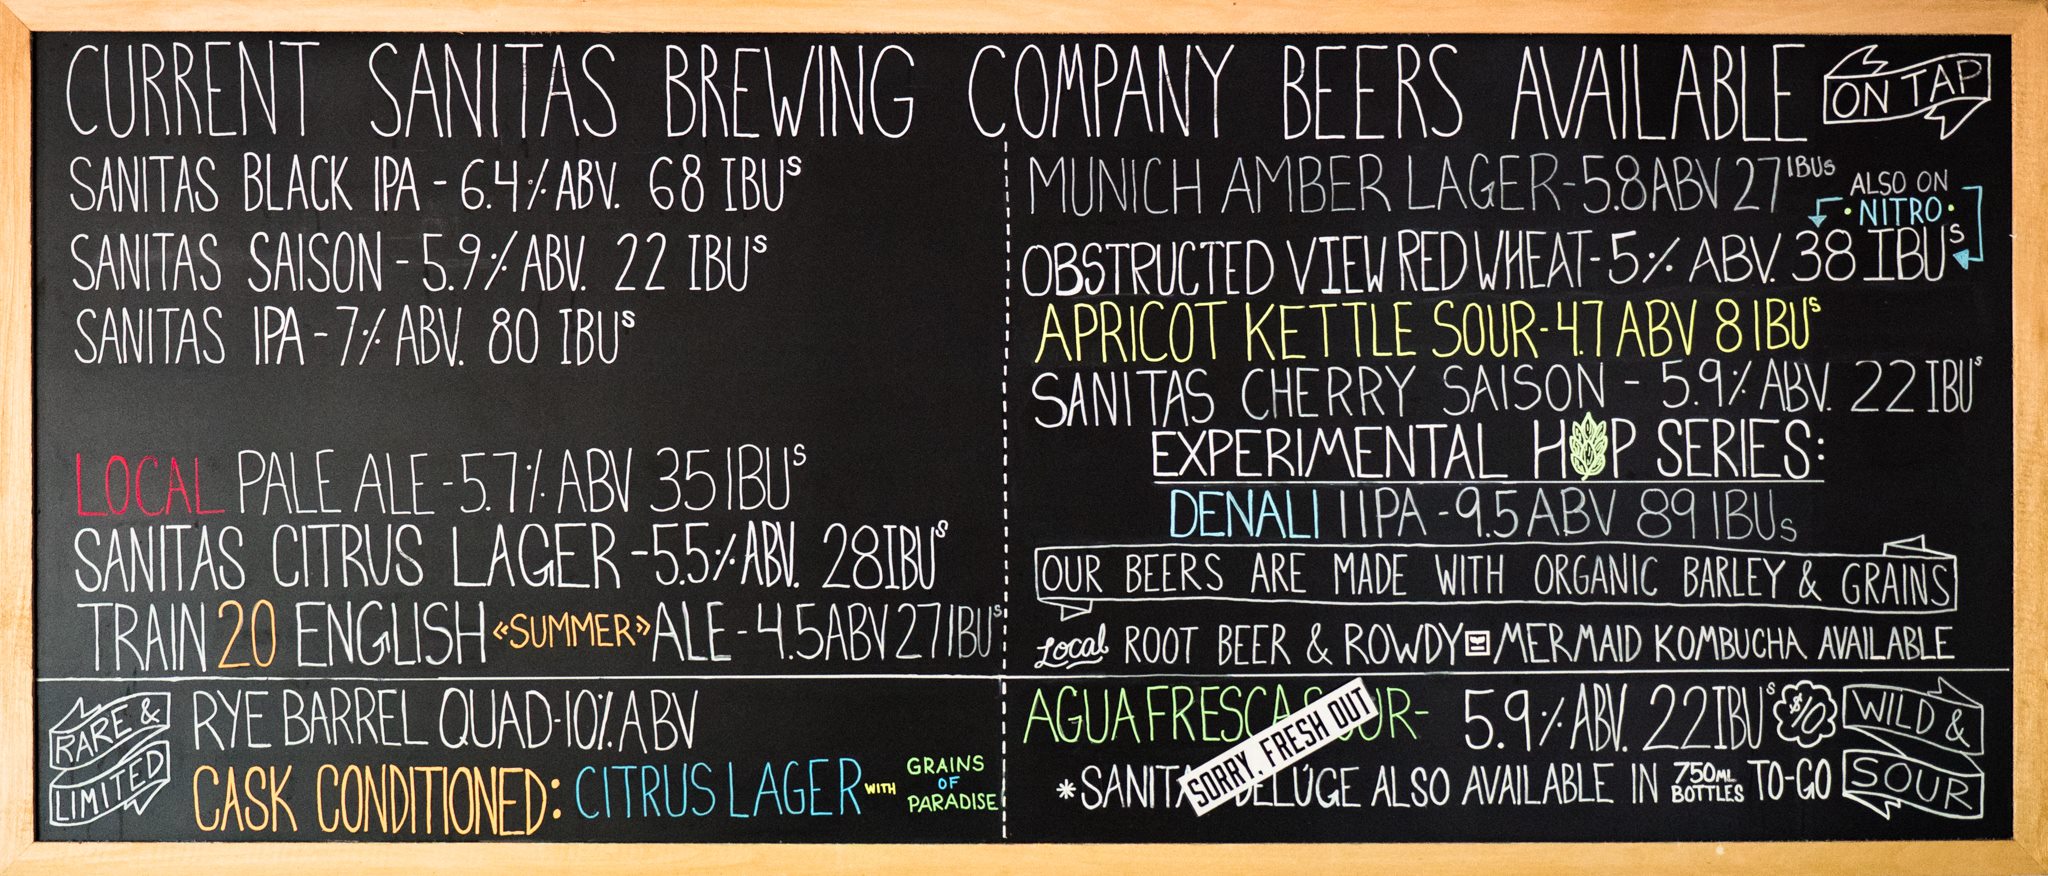 CURRENT SANITAS BREWING COMPANY BEERS AVAILABLE ON TAP
SANITAS BLACK IPA - 6.4% ABV. 68 IBUs
SANITAS SAISON - 5.9% ABV. 22 IBUs
SANITAS IPA - 7% ABV. 80 IBUs
LOCAL PALE ALE - 5.7% ABV 35 IBUs
SANITAS CITRUS LAGER - 5.5% ABV. 28 IBUs
TRAIN 20 ENGLISH «SUMMER» ALE - 4.5 ABV 27 IBUs
MUNICH AMBER LAGER - 5.8 ABV 27 IBUs
ALSO ON
• NITRO •
OBSTRUCTED VIEW RED WHEAT - 5% ABV. 38 IBUs
APRICOT KETTLE SOUR - 4.7 ABV 8 IBUs
SANITAS CHERRY SAISON - 5.9% ABV. 22 IBUs
EXPERIMENTAL HOP SERIES:
DENALI IIPA - 9.5 ABV 89 IBUs
OUR BEERS ARE MADE WITH ORGANIC BARLEY & GRAINS
Local ROOT BEER & ROWDY MERMAID KOMBUCHA AVAILABLE
RARE &
LIMITED
RYE BARREL QUAD - 10% ABV
CASK CONDITIONED: CITRUS LAGER WITH GRAINS OF PARADISE
AGUA FRESCA - 5.9% ABV. 22 IBUs $10
SORRY, FRESH OUT
* DELÚGE ALSO AVAILABLE IN 750ML BOTTLES TO-GO
WILD &
SOUR